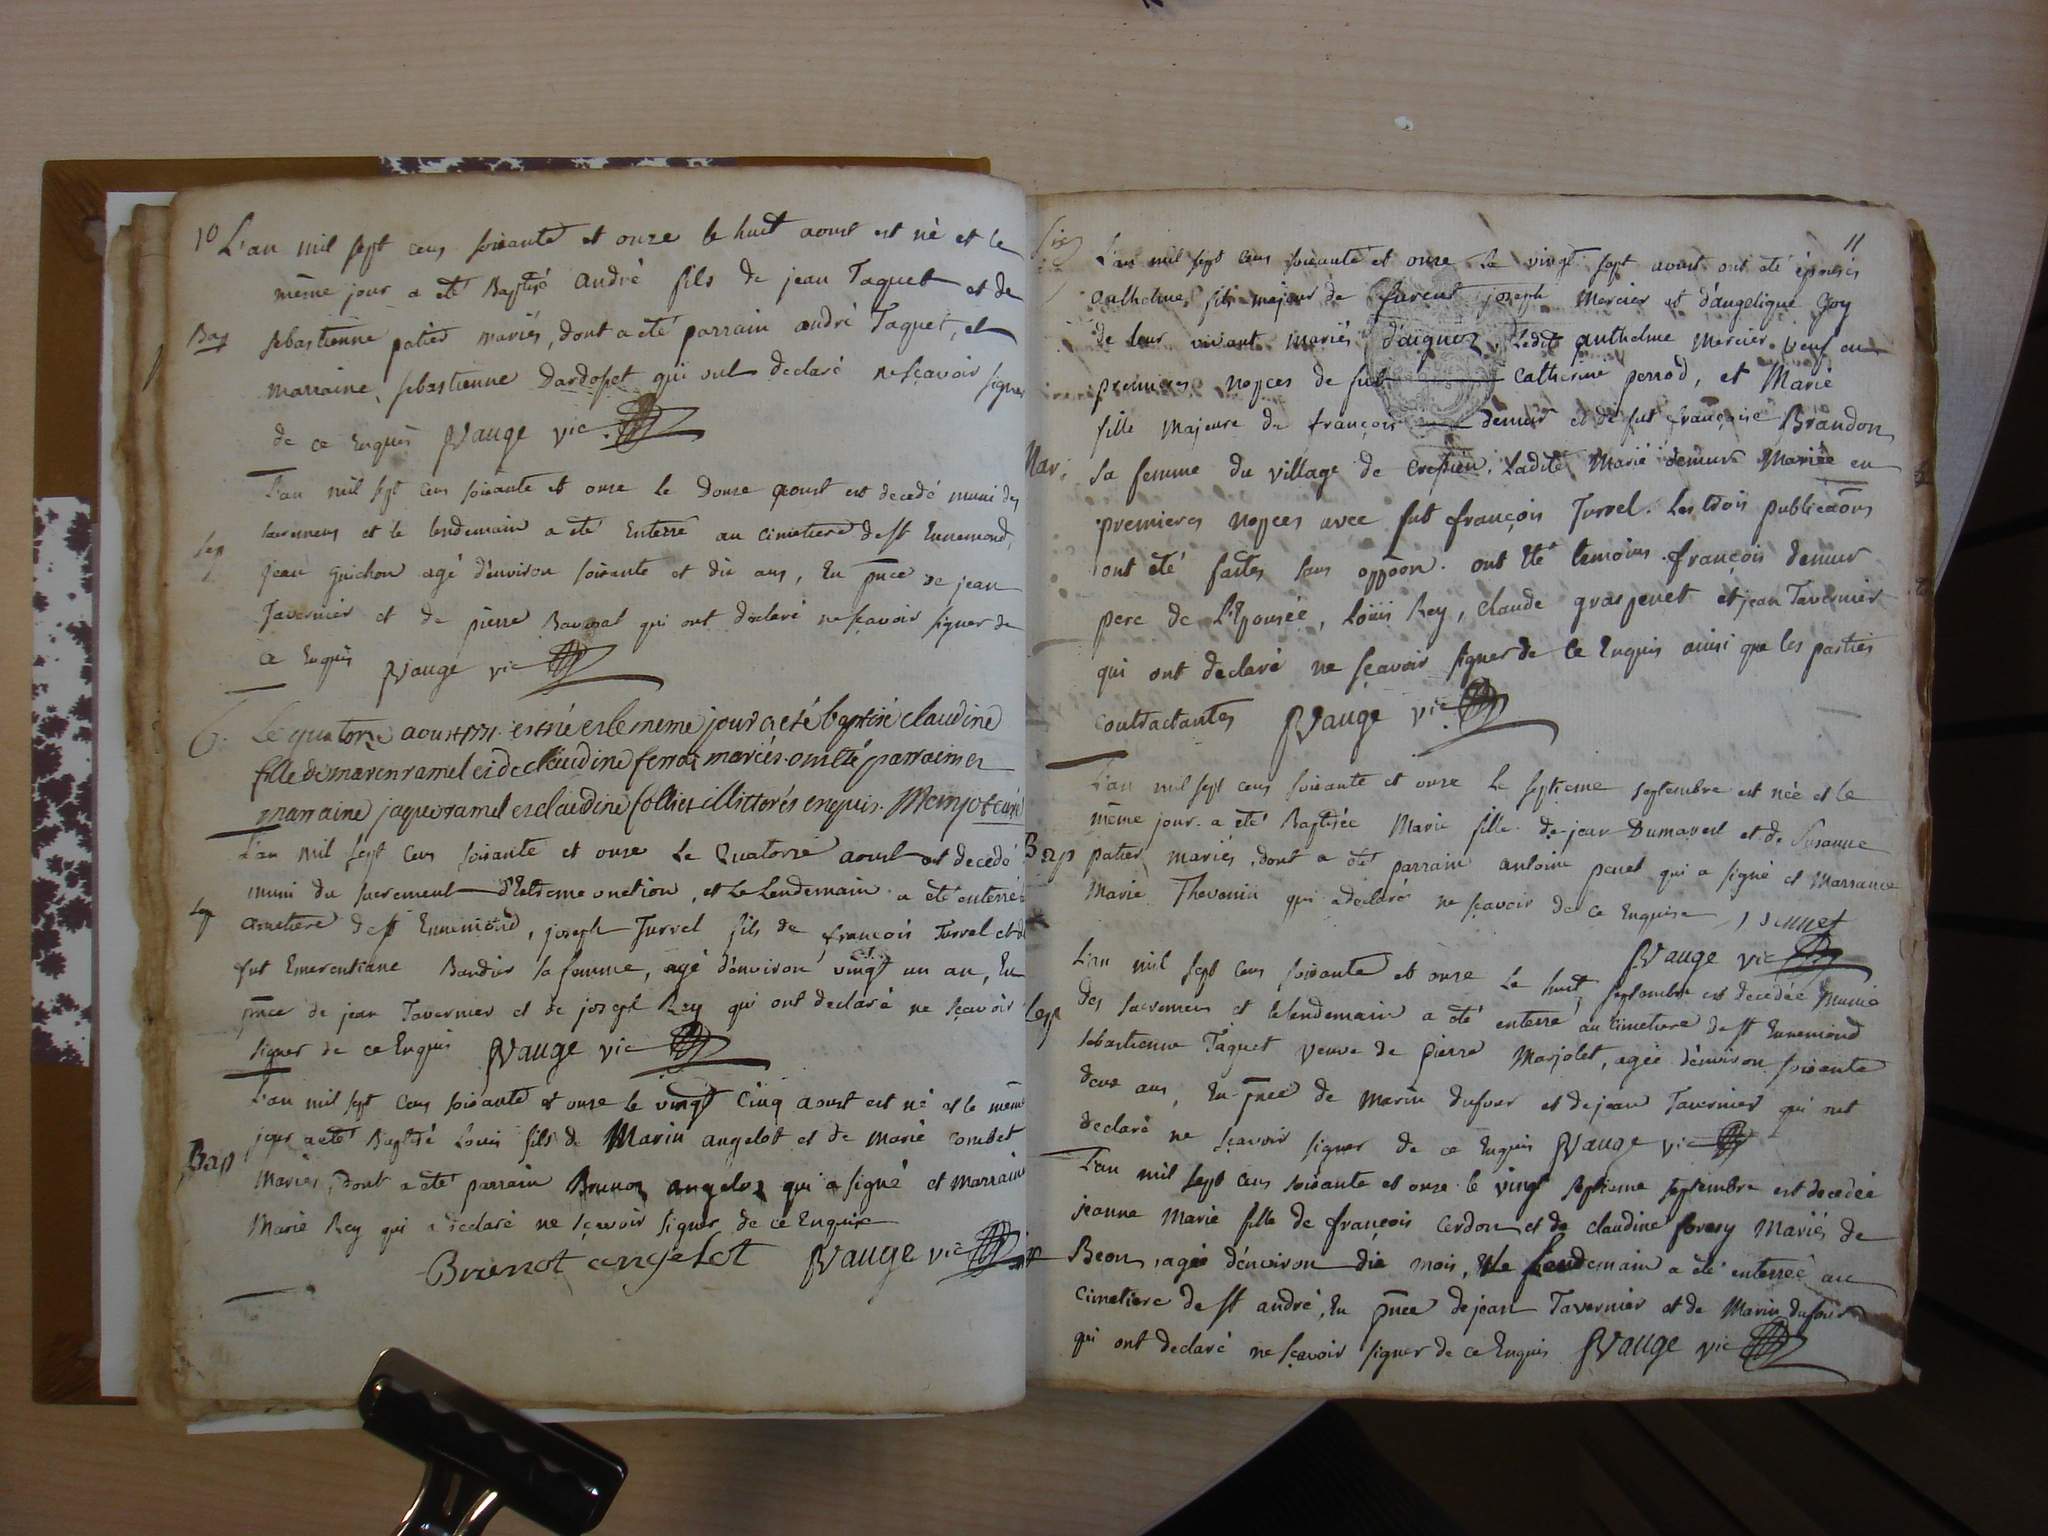 10 L'an mil sept cens soixante et onze le huit aoust est né et le
même jour a eté Baptisé andré fils de jean Taquet et de
Bap sebastienne patier mariés, dont a eté parrain andré Taquet, et
marraine, sebastienne Dardosset qui ont declaré ne sçavoir signer
de ce Enquis JVauge vic.
L'an mil sept cens soixante et onze le douze aoust est decedé muni des
sacremens et le lendemain a eté Enterré au cimetiere de st Ennemond,
Sep jean Guichon agé d'environ soixante et dix ans, En pnce de jean
Tavernier et de pierre qui ont declaré ne sçavoir signer de
ce Enquis JVauge vic
B. Le quatorze aoust 1771 est née et le meme jour a eté baptisée claudine
fille de maren ramel et de claudine ferroz mariés. ont été parrain et
marraine jaque ramel et claudine follier illitterés enquis. curé
L'an mil sept cens soixante et onze Le Quatorze aoust est decedé
muni du sacrement d'Extreme onction, et Le Lendemain a eté enterré
Sep cimetiere de st Ennemond, joseph Turrel fils de françois Turrel et de
fut Emerentiane Baudier sa femme, agé d'environ vingt et un an, En
pnce de jean Tavernier et de joseph Rey qui ont declaré ne sçavoir
signer de ce Enquis JVauge vic
L'an mil sept cens soixante et onze le vingt Cinq aoust est né et le même
jour a eté Baptisé Louis fils de Marin angelot et de marie combet
Bap Mariés, dont a eté parrain Brunot angelot qui a signé et Marraine
Marie Rey qui a declaré ne sçavoir signer de ce Enquise
Brunot angelot JVauge vic
11
L'an mil sept cens soixante et onze Le vingt sept aoust ont été épousés
anthelme, fils majeur de furent joseph Mercier et d'angelique Goy
de leur vivant mariés d'aignoz, Ledit anthelme Mercier veuf en
premieres nopces de fut Catherine perrod, et Marie
fille Majeure de françois demur et de fut françoise Brandon
Mar. sa femme du village de Crepieu, Ladite Marie demur Mariée en
premieres nopces avec fut françois Turrel. Les trois publicaons
ont été faites sans oppoon. ont été temoins françois demur
pere de L'Epousée, Loüis Rey, claude grasjenet et jean Tavernier
qui ont declaré ne sçavoir signer de ce Enquis ainsi que les parties
contractantes JVauge vic
L'an mil sept cens soixante et onze Le septieme septembre est née et le
même jour a eté Baptisée Marie fille de jean Dumarest et de Susanne
Bap patier mariés, dont a eté parrain antoine penet qui a signé et Marraine
Marie Thevenin qui a declaré ne sçavoir de ce Enquise
JVauge vic
L'an mil sept cens soixante et onze Le huit septembre est decedée munie
Sep des sacremens et le lendemain a eté enterré au cimetiere de st Ennemond
sebastienne Taquet veuve de pierre Marjolet, agée d'environ soixante
deux ans, En pnce de Marin dufour et de jean Tavernier qui ont
declaré ne sçavoir signer de ce Enquis JVauge vic
L'an mil sept cens soixante et onze le vingt septieme septembre est decedée
jeanne Marie fille de françois Cerdon et de claudine foresy Mariés de
Beon, agée d'environ dix mois, et le Lendemain a eté enterrée au
cimetiere de st andré, En pnce de jean Tavernier et de Marin dufour
qui ont declaré ne sçavoir signer de ce Enquis JVauge vic